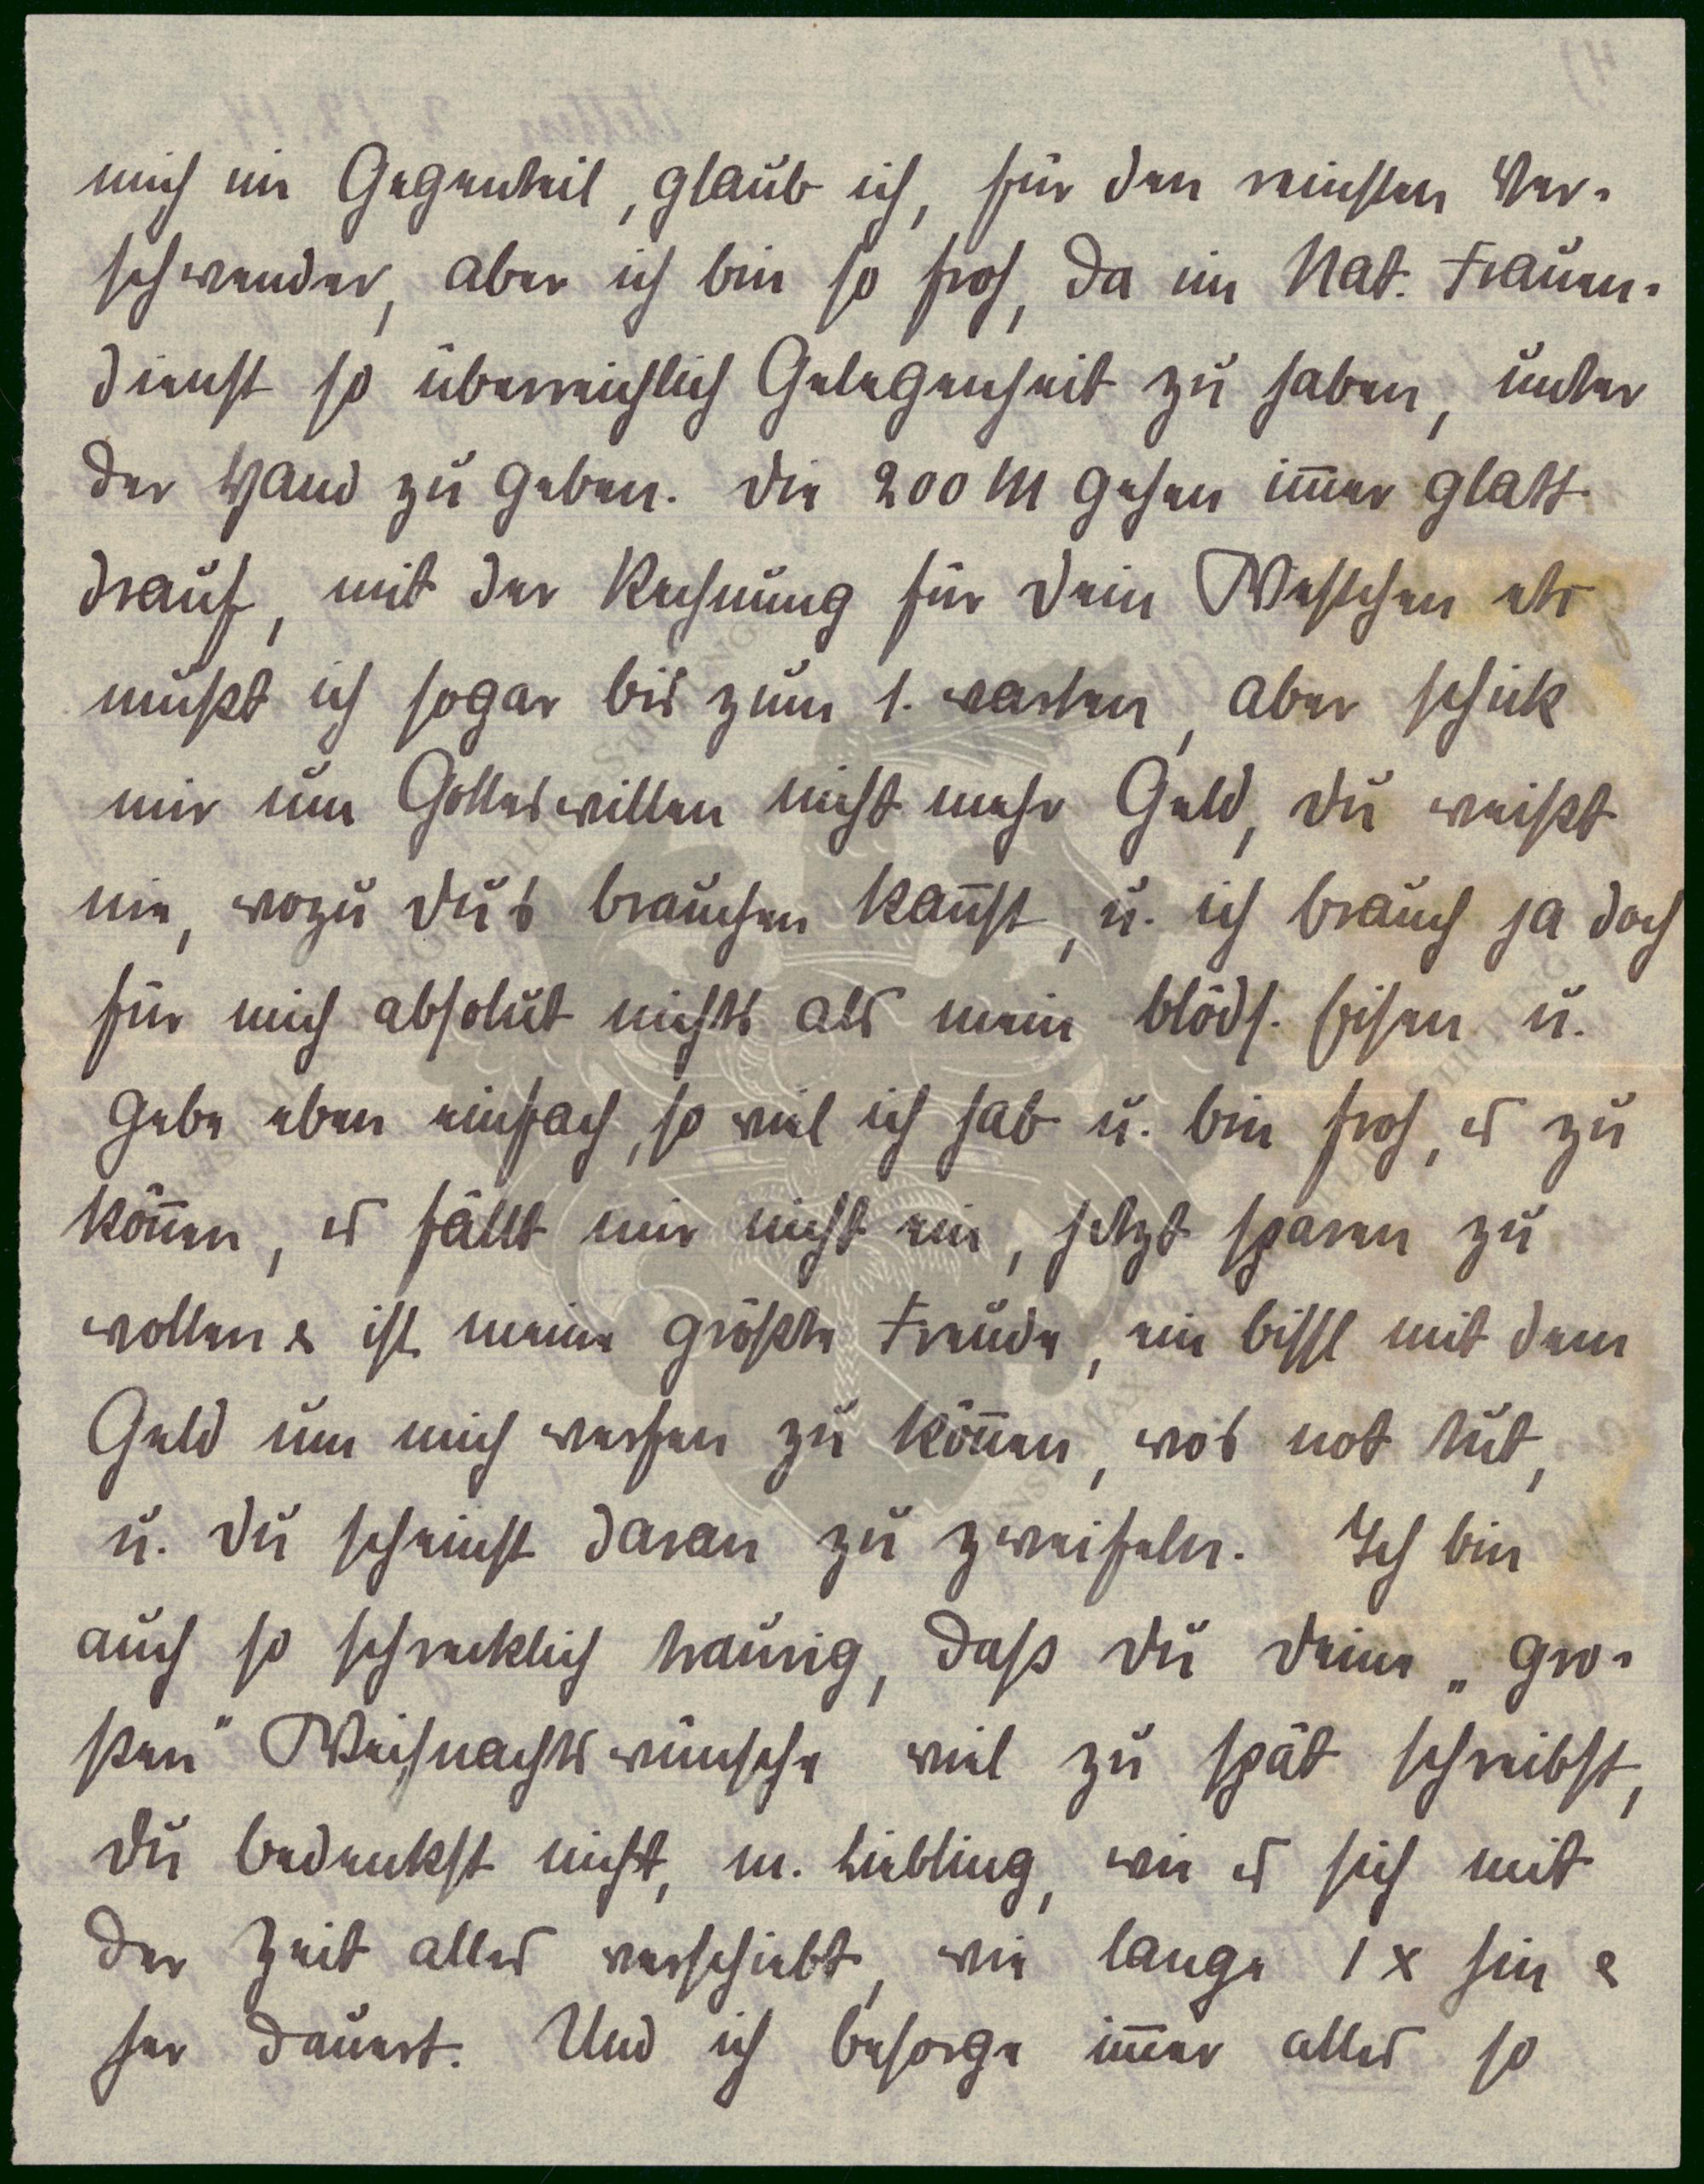 mich im Gegenteil, glaub ich, für den reinsten Ver-
schwender, aber ich bin so froh, da im Nat. Frauen-
dienst so überreichlich Gelegenheit zu haben, unter
der Hand zu geben. Die 200 M gehen im̅er glatt
drauf, mit der Rechnung für Dein Westchen etc
mußt ich sogar bis zum 1. warten, aber schick
mir um Gotteswillen nicht mehr Geld, Du weißt
nie, wozu Du's brauchen kan̅st, u. ich brauch ja doch
für mich absolut nichts als mein blöds. Eisen u.
gebe eben einfach, so viel ich hab u. bin froh, es zu
kön̅en, es fällt mir nicht ein, jetzt sparen zu
wollen & ist meine größte Freude, ein bissl mit dem
Geld um mich werfen zu kön̅en, wo's not tut,
u. Du scheinst daran zu zweifeln. Ich bin
auch so schrecklich traurig, daß Du Deine „gro-
ßen" Weihnachtswünsche viel zu spät schreibst,
Du bedenkst nicht, m. Liebling, wie es sich mit
der Zeit alles verschiebt, wie lange 1 x hin &
her dauert. Und ich besorge im̅er alles so